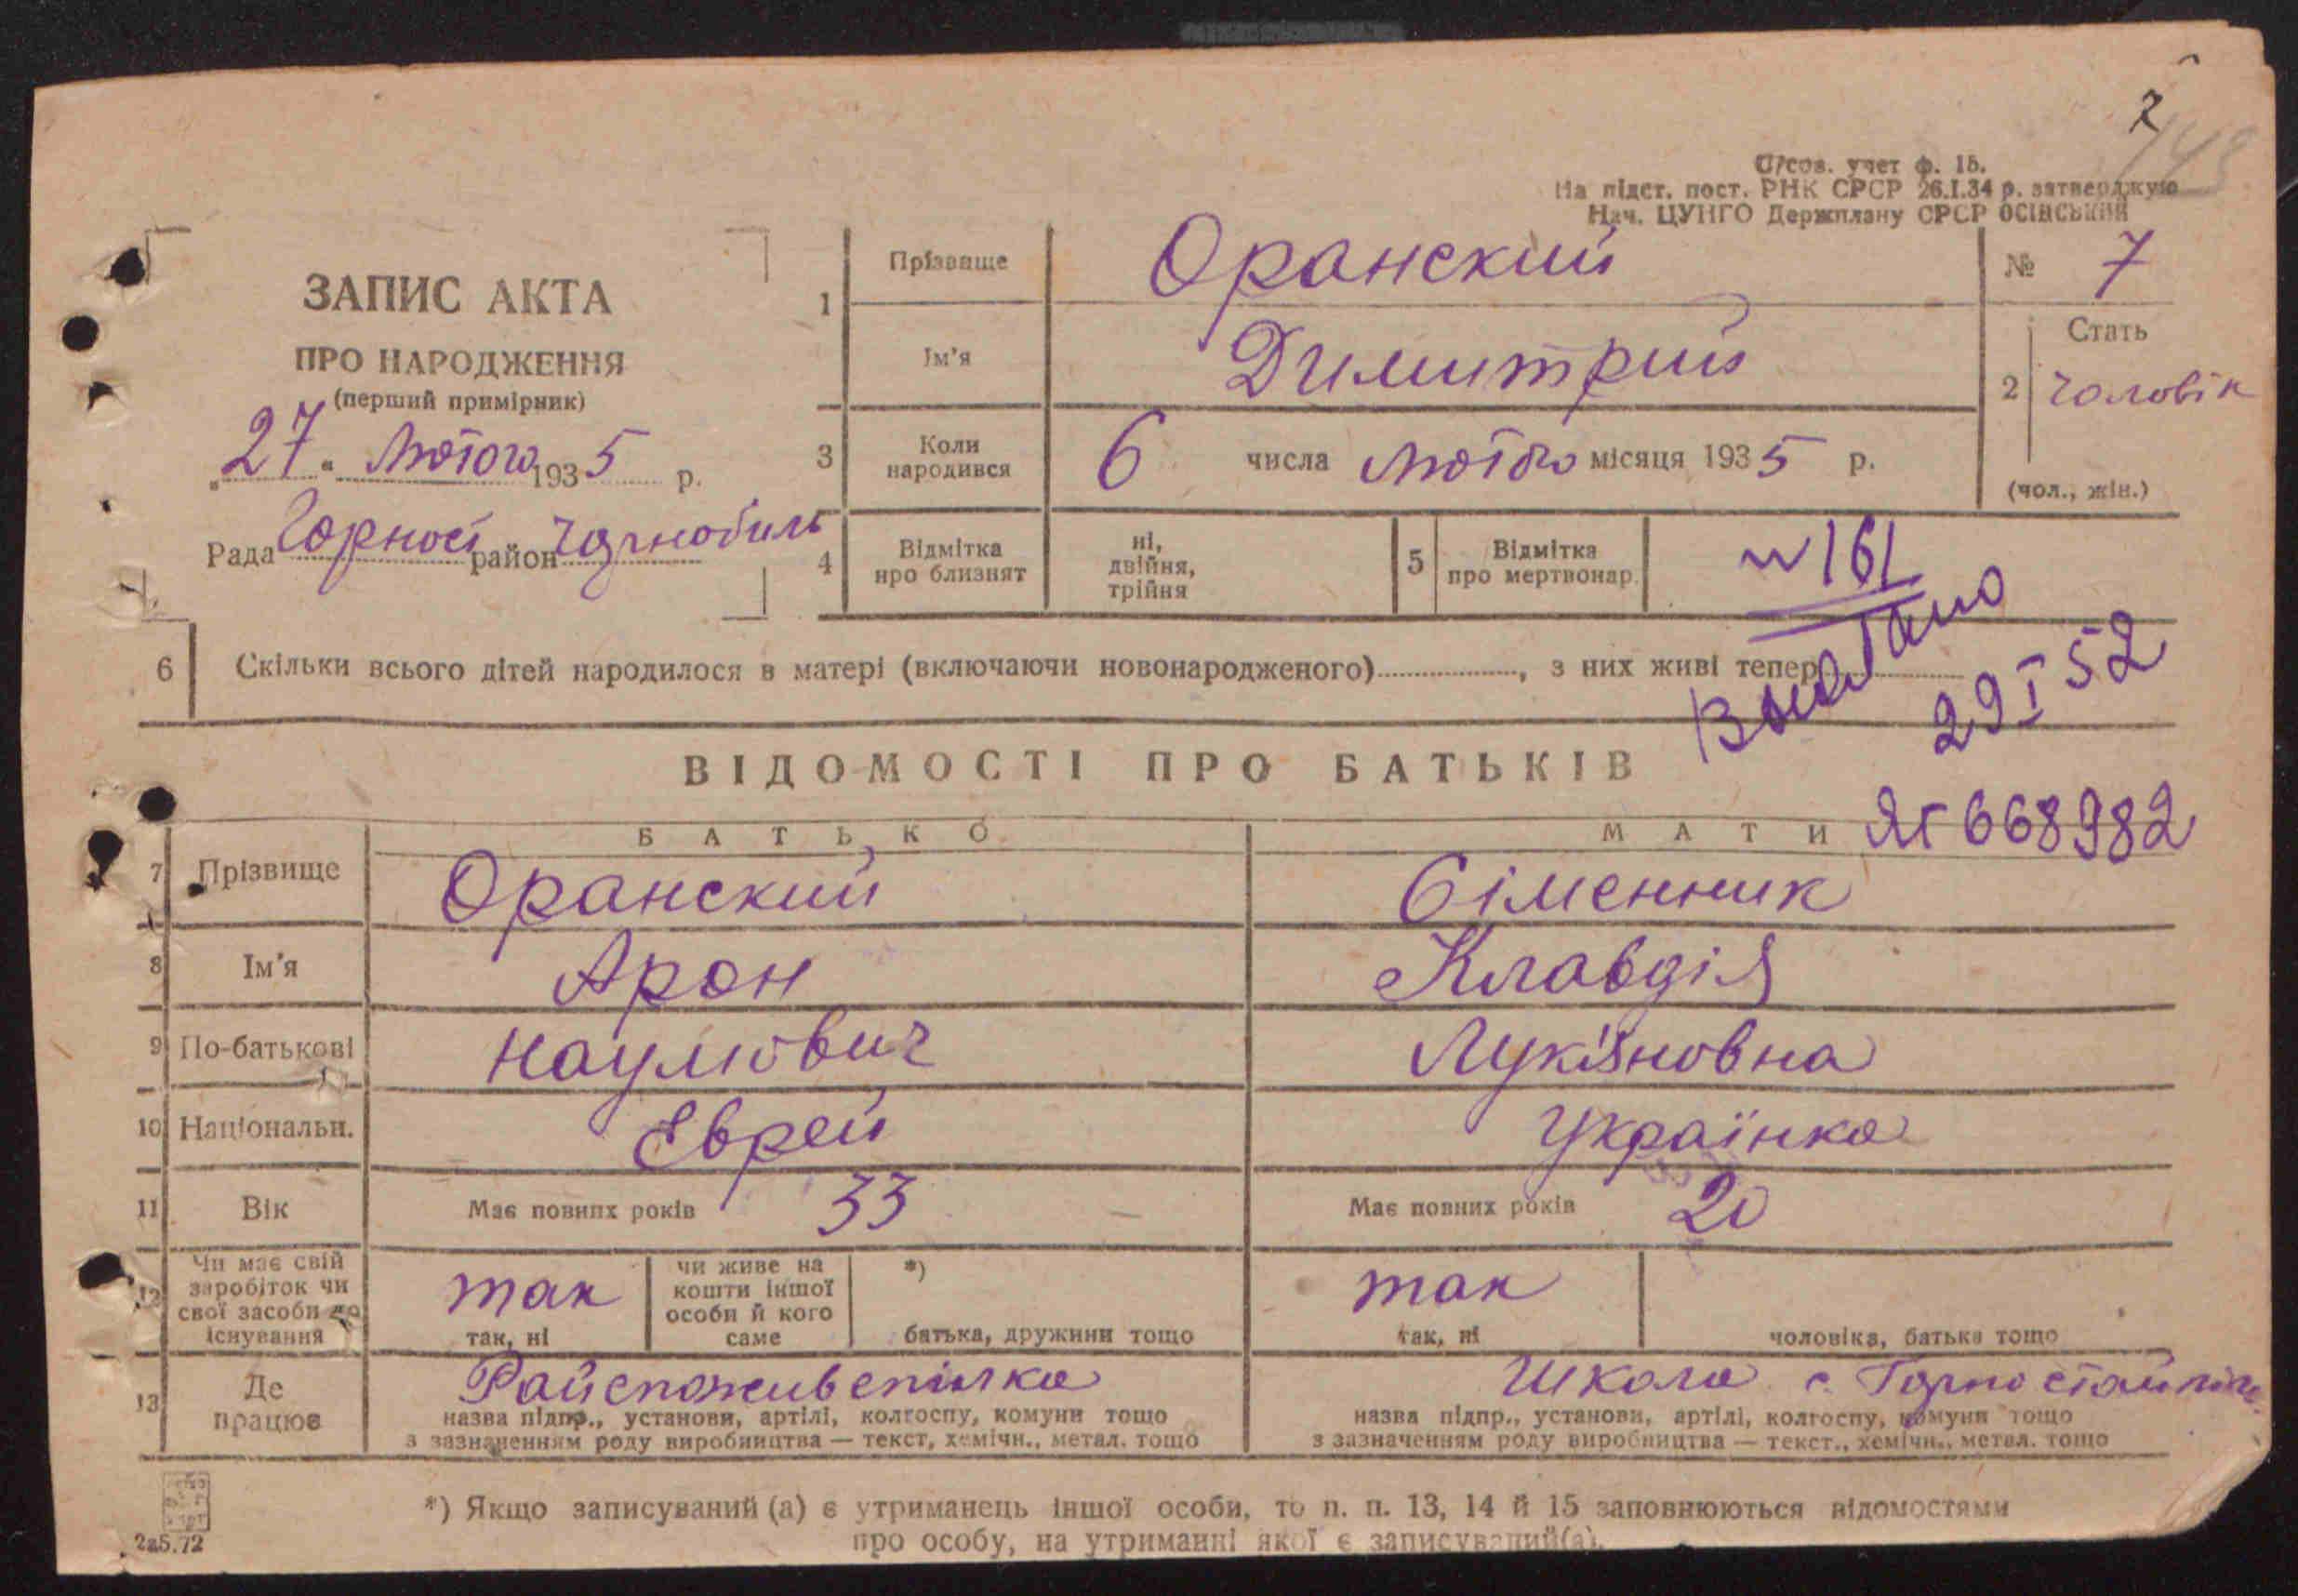 2
148
С/сов. учет ф. 15.
На підст. пост. РНК СРСР 26.I.34 р. затверджую
Нач. ЦУНГО Держплану СРСР ОСІНСЬКИЙ
ЗАПИС АКТА
ПРО НАРОДЖЕННЯ
(перший примірник)
„27“ Лютого 1935 р.
Рада Горност район Чорнобиль
1 Прізвище Оранский
Ім'я Димитрий
№ 7
2 Стать
чоловік
(чол., жін.)
3 Коли народився 6 числа Лютого місяця 1935 р.
4 Відмітка про близнят
ні, двійня, трійня
5 Відмітка про мертвонар.
№161
6 Скільки всього дітей народилося в матері (включаючи новонародженого)........, з них живі тепер
29 I 52
ВІДОМОСТІ ПРО БАТЬКІВ
ЯГ 668982
БАТЬКО МАТИ
7 Прізвище Оранский Сіменник
8 Ім'я Арон Клавдія
9 По-батькові Наумович Лук'яновна
10 Національн. Еврей Українка
11 Вік Має повних років 33 Має повних років 20
12 Чи має свій заробіток чи свої засоби до існування
так
так, ні
чи живе на кошти іншої особи й кого саме
*)
батька, дружини тощо
так
так, ні
чоловіка, батька тощо
13 Де працює
Райспоживспілка
назва підпр., установи, артілі, колгоспу, комуни тощо
з зазначенням роду виробництва — текст, хемічн., метал. тощо
Школа с. Горностайпіль
назва підпр., установи, артілі, колгоспу, комуни тощо
з зазначенням роду виробництва — текст., хемічн., метал. тощо
*) Якщо записуваний (а) є утриманець іншої особи, то п. п. 13, 14 й 15 заповнюються відомостями
про особу, на утриманні якої є записуваний(а).
2а5.72